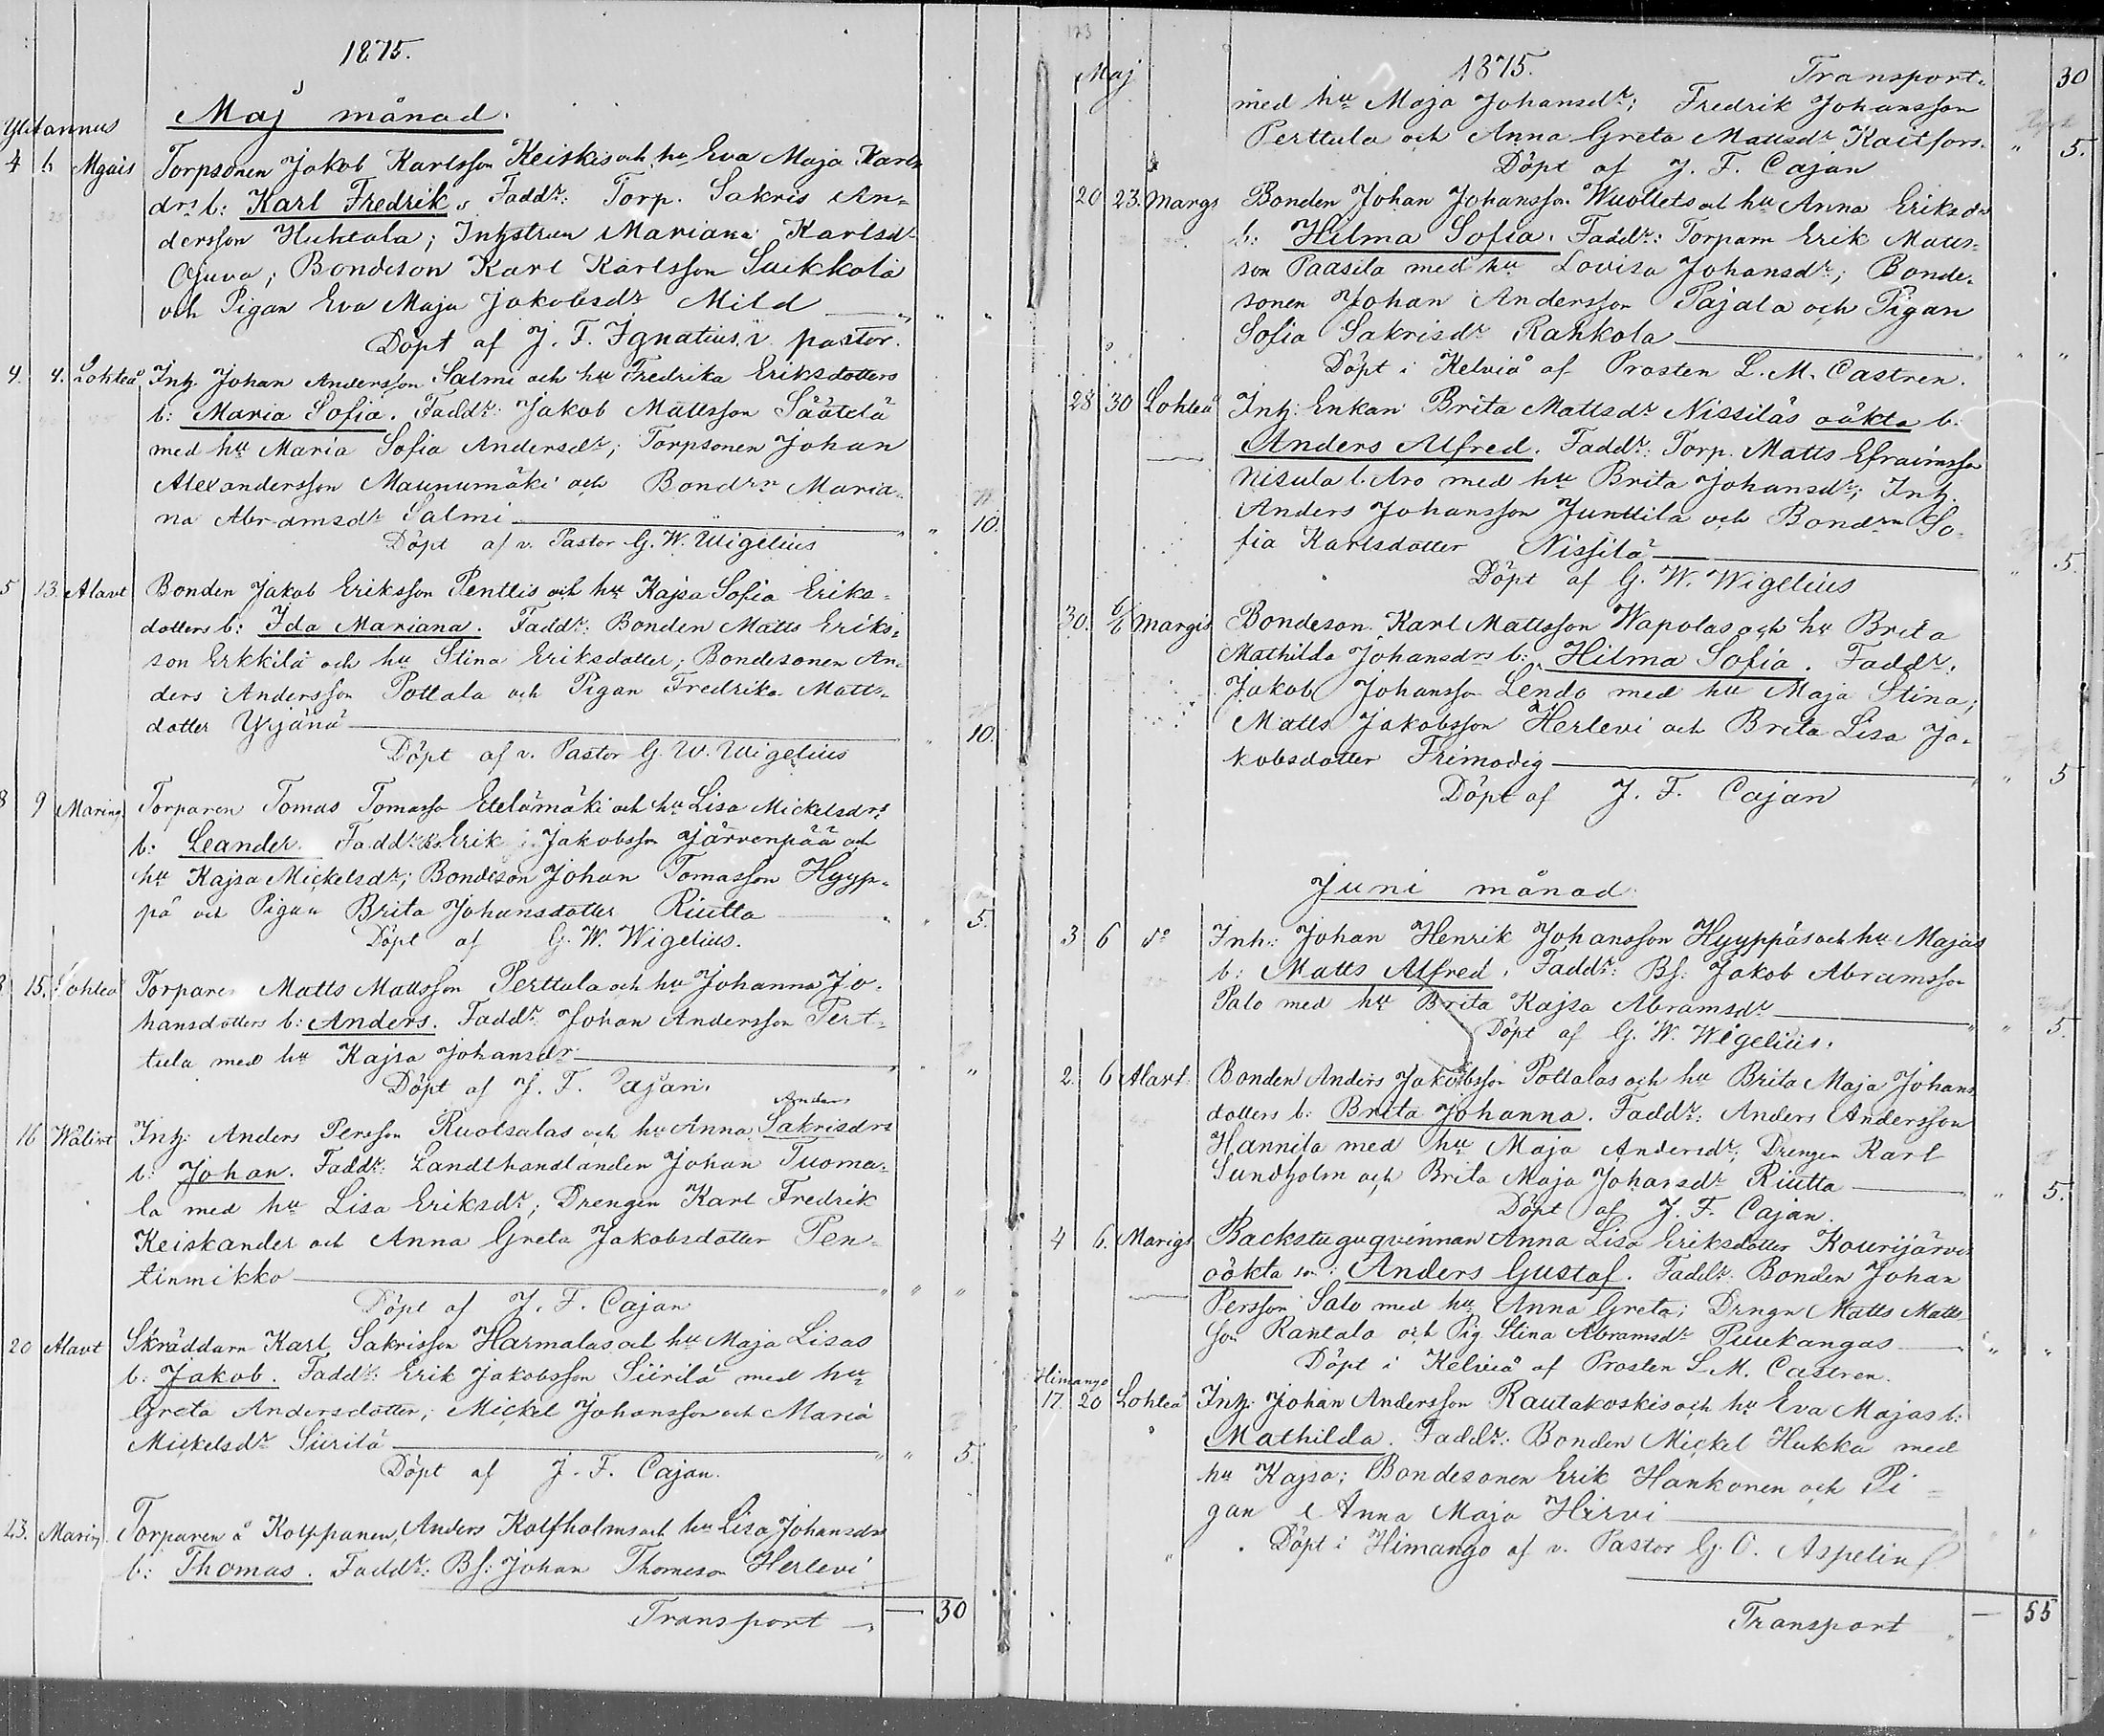 1875.
Maj månad.
Ylitannus
4 6 Mgais Torpsonen Jakob Karlsson Keiskis och hu Eva Maja Karls
drs b: Karl Fredrik, Faddr: Torp. Sakris An-
dersson Huhtala; Inhstrun Mariana Karlsdr
Ojuva; Bondeson Karl Karlsson Saikkola
och Pigan Eva Maja Jakobsdr Mild
Döpt af J. F. Ignatius, v. pastor.
4. 4. Lohteå Inh. Johan Andersson Salmi och hu Fredrika Eriksdotters
b: Maria Sofia. Faddr: Jakob Mattsson Säätelä
med hu Maria Sofia Andersdr; Torpsonen Johan
Alexandersson Maunumäki och Bondrn Maria-
na Abramsdr Salmi " 10.
Döpt af v. Pastor G. W. Wigelius
5 13. Alavt Bonden Jakob Eriksson Penttis och hu Kajsa Sofia Eriks-
dotters b: Ida Mariana. Faddr: Bonden Matts Eriks-
son Erkkilä och hu Stina Eriksdotter; Bondesonen An-
ders Andersson Pottala och Pigan Fredrika Matts-
dotter Yrjänä " 10.
Döpt af v. Pastor G. W. Wigelius
8 9 Maring Torparen Tomas Tomasso Etelämäki och hu Lisa Mickelsdrs
b: Leander. Faddr: Bs. Erik Jakobsson Järvenpää och
hu Kajsa Mickelsdr; Bondeson Johan Tomasson Hyyp-
pä och Pigan Brita Johansdotter Riutta " 5.
Döpt af G. W. Wigelius.
8 15. Lohteå Torparen Matts Mattsson Perttula och hu Johanna Jo-
hansdotters b: Anders. Faddr: Johan Andersson Pert-
tula med hu Kajsa Johansdr "
Döpt af J. F. Cajan.
Anders
16 Wälivt Inh: Anders Persson Ruotsalas och hu Anna Sakrisdrs
b: Johan. Faddr: Landthandlanden Johan Tuoma-
la med hu Lisa Eriksdr; Drengen Karl Fredrik
Keiskander och Anna Greta Jakobsdotter Pen-
tinmikko " " "
Döpt af J. F. Cajan
20 Alavt Skräddarn Karl Sakrisson Harmalas och hu Maja Lisas
b: Jakob. Faddr: Erik Jakobsson Siirilä med hu
Greta Andersdotter; Mickel Johansson och Maria
Mickelsdr Siirilä " " 5.
Döpt af J. F. Cajan.
23. Maring Torparen å Kolppanen, Anders Kolfholms och hu Lisa Johansdrs
b: Thomas. Faddr: Bs: Johan Thomeson Herlevi
Transport — 30
123
Maj 1875. Transport. 30
med hu Maja Johansdr; Fredrik Johansson
Perttula och Anna Greta Mattsdr Kaitfors. " 5.
Döpt af J. F. Cajan
20 23. Margs Bonden Johan Johansson Wuollets och hu Anna Eriksdrs
b: Hilma Sofia. Faddr: Torparn Erik Matts-
son Paasila med hu Lovisa Johansdr; Bonde-
sonen Johan Andersson Pajala och Pigan
Sofia Sakrisdr Rahkola " "
Döpt i Kelviå af Prosten L. M. Castren.
28 30 Lohteå Inh: Enkan Brita Mattsdr Nissiläs oäkta b.
Anders Alfred. Faddr: Torp. Matts Efraimsson
Nisula l. Aro med hu Brita Johansdr; Inh.
Anders Johansson Junttila och Bondrn So-
fia Karlsdotter Nissilä " 5.
Döpt af G. W. Wigelius
30. 6/6 Margis Bondeson Karl Mattsson Wapolas och hu Brita
Mathilda Johansdrs b: Hilma Sofia. Faddr:
Jakob Johansson Lendo med hu Maja Stina;
Matts Jakobsson Herlevi och Brita Lisa Ja-
kobsdotter Frimodig " 5
Döpt af J. F. Cajan
Juni månad.
3 6 do Inh: Johan Henrik Johansson Hyyppäs och hu Majas
b: Matts Alfred. Faddr: Bs: Jakob Abramsson
Palo med hu Brita Kajsa Abramsdr " " 5.
Döpt af G. W. Wigelius.
2. 6 Alavt. Bonden Anders Jakobsson Pottalas och hu Brita Maja Johans
dotters b: Brita Johanna. Faddr: Anders Andersson
Hannila med hu Maja Andersdr; Drengen Karl
Sundholm och Brita Maja Johansdr Riutta " 5.
Döpt af J. F. Cajan.
4 6. Marigs Backstuguqvinnan Anna Lisa Eriksdotter Kourijärvis
oökta son: Anders Gustaf. Faddr: Bonden Johan
Persson Salo med hu Anna Greta; Drngn Matts Matts-
son Rantala och Pig Stina Abramsdr Puukangas " "
Döpt i Kelviå af Prosten L. M. Castren.
Himango
17. 20 Lohteå Inh: Johan Andersson Rautakoskis och hu Eva Majas b:
Mathilda. Faddr: Bonden Mickel Hukka med
hu Kajsa; Bondesonen Erik Hankonen och Pi-
gan Anna Maja Hirvi " "
Döpt i Himango af v. Pastor G. O. Aspelin
Transport — 55